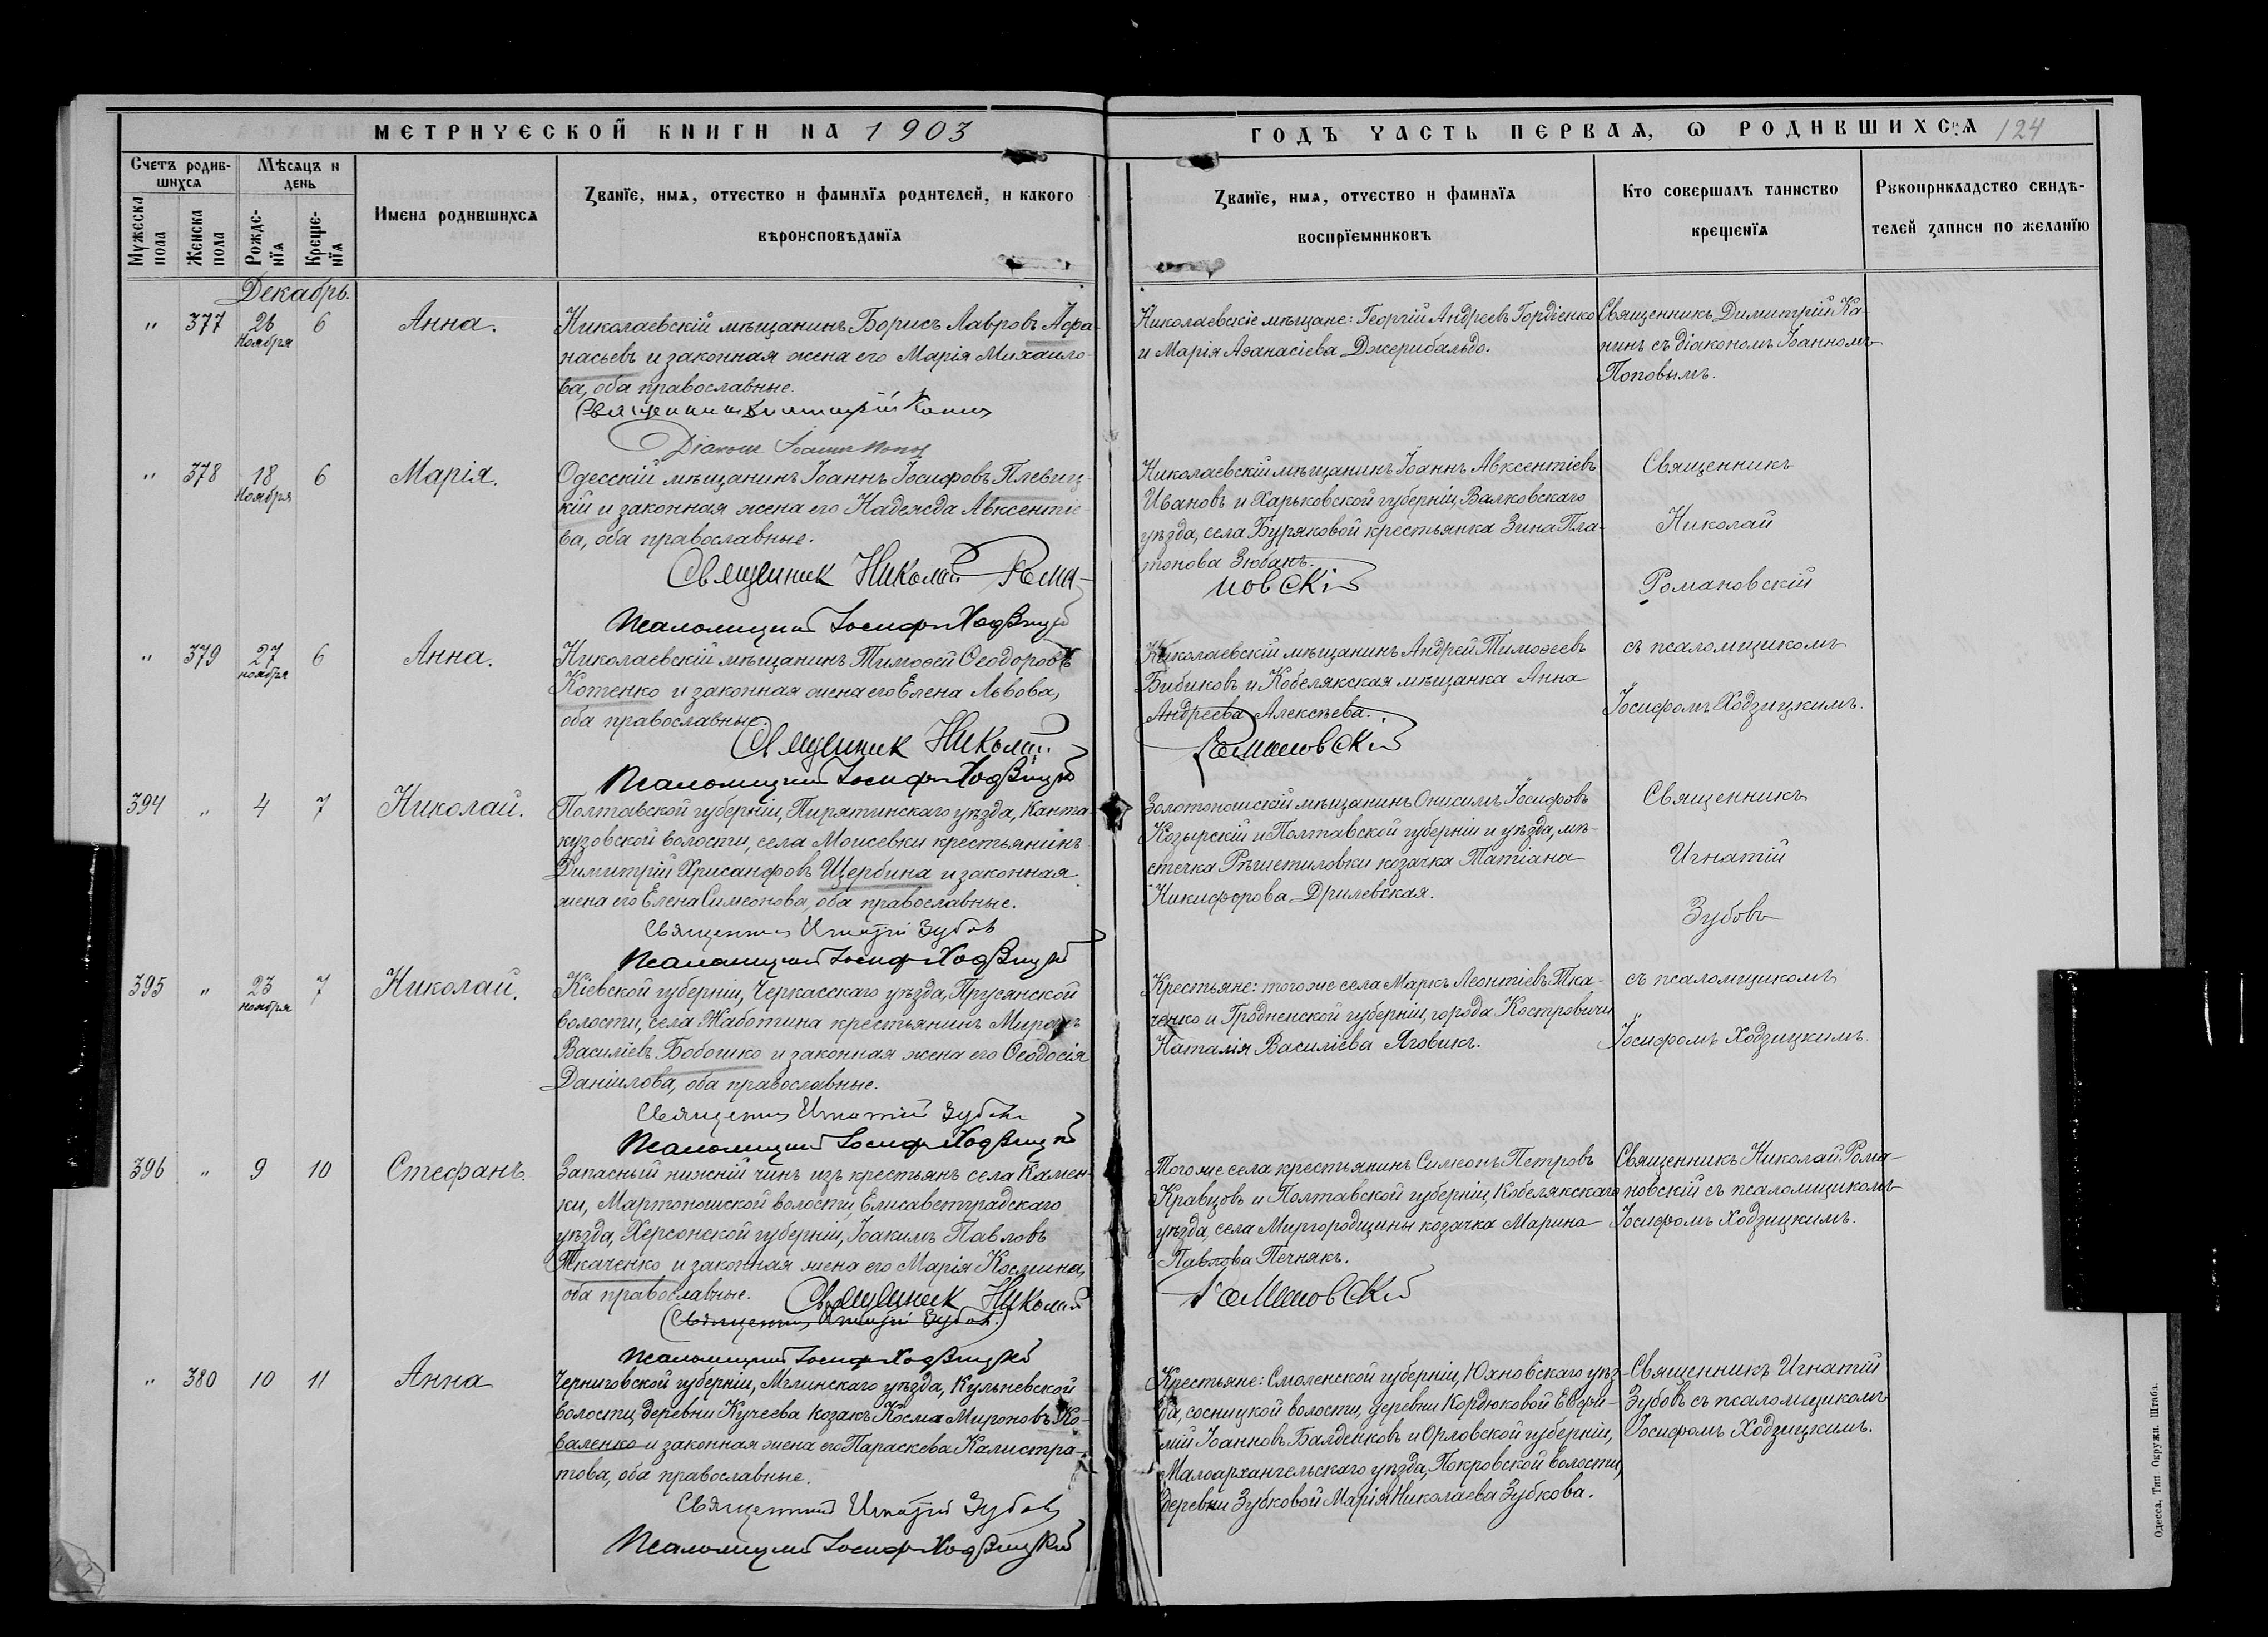 МЕТРИЧЕСКОЙ КНИГИ НА 1903
ГОДЪ ЧАСТЬ ПЕРВАЯ, Ѡ РОДИВШИХСЯ 124
Счетъ родив-
шихся
Мѣсяцъ и
день
Мужеска
пола
Женска
пола
Рожде-
нїя
Креще-
нїя
Имена родившихся
Званїе, имя, отчество и фамилїя родителей, и какого
вѣроисповѣданїя
Званїе, имя, отчество и фамилїя
воспрїемниковъ
Кто совершалъ таинство
крещенїя
Рукоприкладство свидѣ-
телей записи по желанїю
Декабрь.
" 377 26 Ноября 6
Анна.
Николаевскій мѣщанинъ Борисъ Лавровъ Афа-
насьевъ и законная жена его Марія Михаило-
ва, оба православные.
Священникъ Димитрій Канинъ
Діаконъ Іоаннъ Поповъ
Николаевскіе мѣщане: Георгій Андреевъ Гордіенко
и Марія Аѳанасіева Джерибальдо.
Священникъ Димитрій Ка-
нинъ съ діакономъ Іоанномъ
Поповымъ.
" 378 18 Ноября 6
Марія.
Одесскій мѣщанинъ Іоаннъ Іосифовъ Плевиц-
кій и законная жена его Надежда Авксентіе-
ва, оба православные.
Священник Николай Рома-
новскій
Псаломщикъ Іосифъ Ходзицкій
Николаевскій мѣщанинъ Іоаннъ Авксентіевъ
Ивановъ и Харьковской губерніи, Валковскаго
уѣзда, села Буряковой крестьянка Зина Пла-
тонова Зюбанъ.
Священникъ
Николай
Романовскій
" 379 27 ноября 6
Анна.
Николаевскій мѣщанинъ Тимоѳей Ѳеодоровъ
Котенко и законная жена его Елена Львова,
оба православные.
Священник Николай
Романовскій
Псаломщикъ Іосифъ Ходзицкій
Николаевскій мѣщанинъ Андрей Тимоѳеевъ
Бибиковъ и Кобелякская мѣщанка Анна
Андреева Алексѣева.
съ псаломщикомъ
Іосифомъ Ходзицкимъ.
394 " 4 7
Николай.
Полтавской губерніи, Пирятинскаго уѣзда, Канта-
кузовской волости, села Моисевки крестьянинъ
Димитрій Хрисанфовъ Щербина и законная
жена его Елена Симеонова, оба православные.
Священникъ Игнатій Зубовъ
Псаломщикъ Іосифъ Ходзицкій
Золотоношскій мѣщанинъ Онисимъ Іосифовъ
Козырскій и Полтавской губерніи и уѣзда, мѣ-
стечка Рѣшетиловки козачка Татіана
Никифорова Дрилевская.
Священникъ
Игнатій
Зубовъ
395 " 23 ноября 7
Николай.
Кіевской губерніи, Черкасскаго уѣзда, Прусянской
волости, села Жаботина крестьянинъ Миронъ
Василіевъ Бобошко и законная жена его Ѳеодосія
Даніилова, оба православные.
Священникъ Игнатій Зубовъ
Псаломщикъ Іосифъ Ходзицкій
Крестьяне: того же села Маркъ Леонтіевъ Тка-
ченко и Гродненской губерніи, города Костровичи
Наталія Василіева Яговикъ.
съ псаломщикомъ
Іосифомъ Ходзицкимъ.
396 " 9 10
Стефанъ.
Запасный нижній чинъ изъ крестьянъ села Камен-
ки, Мартоношской волости, Елисаветградскаго
уѣзда, Херсонской губерніи, Іоакимъ Павловъ
Ткаченко и законная жена его Марія Космина,
оба православные. Священник Николай
Романовскій
(Священникъ Игнатій Зубовъ.)
Псаломщикъ Іосифъ Ходзицкій
Того же села крестьянинъ Симеонъ Петровъ
Кравцовъ и Полтавской губерніи, Кобелякскаго
уѣзда, села Миргородщины козачка Марина
Павлова Печнякъ.
Священникъ Николай Рома-
новскій съ псаломщикомъ
Іосифомъ Ходзицкимъ.
" 380 10 11
Анна
Черниговской губерніи, Мглинскаго уѣзда, Кульневской
волости, деревни Кучеева козакъ Косма Мироновъ Ко-
валенко и законная жена его Параскева Калистра-
това, оба православные.
Священникъ Игнатій Зубовъ
Псаломщикъ Іосифъ Ходзицкій
Крестьяне: Смоленской губерніи, Юхновскаго уѣз-
да, сосницкой волости, деревни Кордюковой Евфи-
мій Іоанновъ Балденковъ и Орловской губерніи,
Малоархангельскаго уѣзда, Покровской волости,
деревни Зубковой Марія Николаева Зубкова.
Священникъ Игнатій
Зубовъ съ псаломщикомъ
Іосифомъ Ходзицкимъ.
Одесса, Тип. Окружн. Штаба.